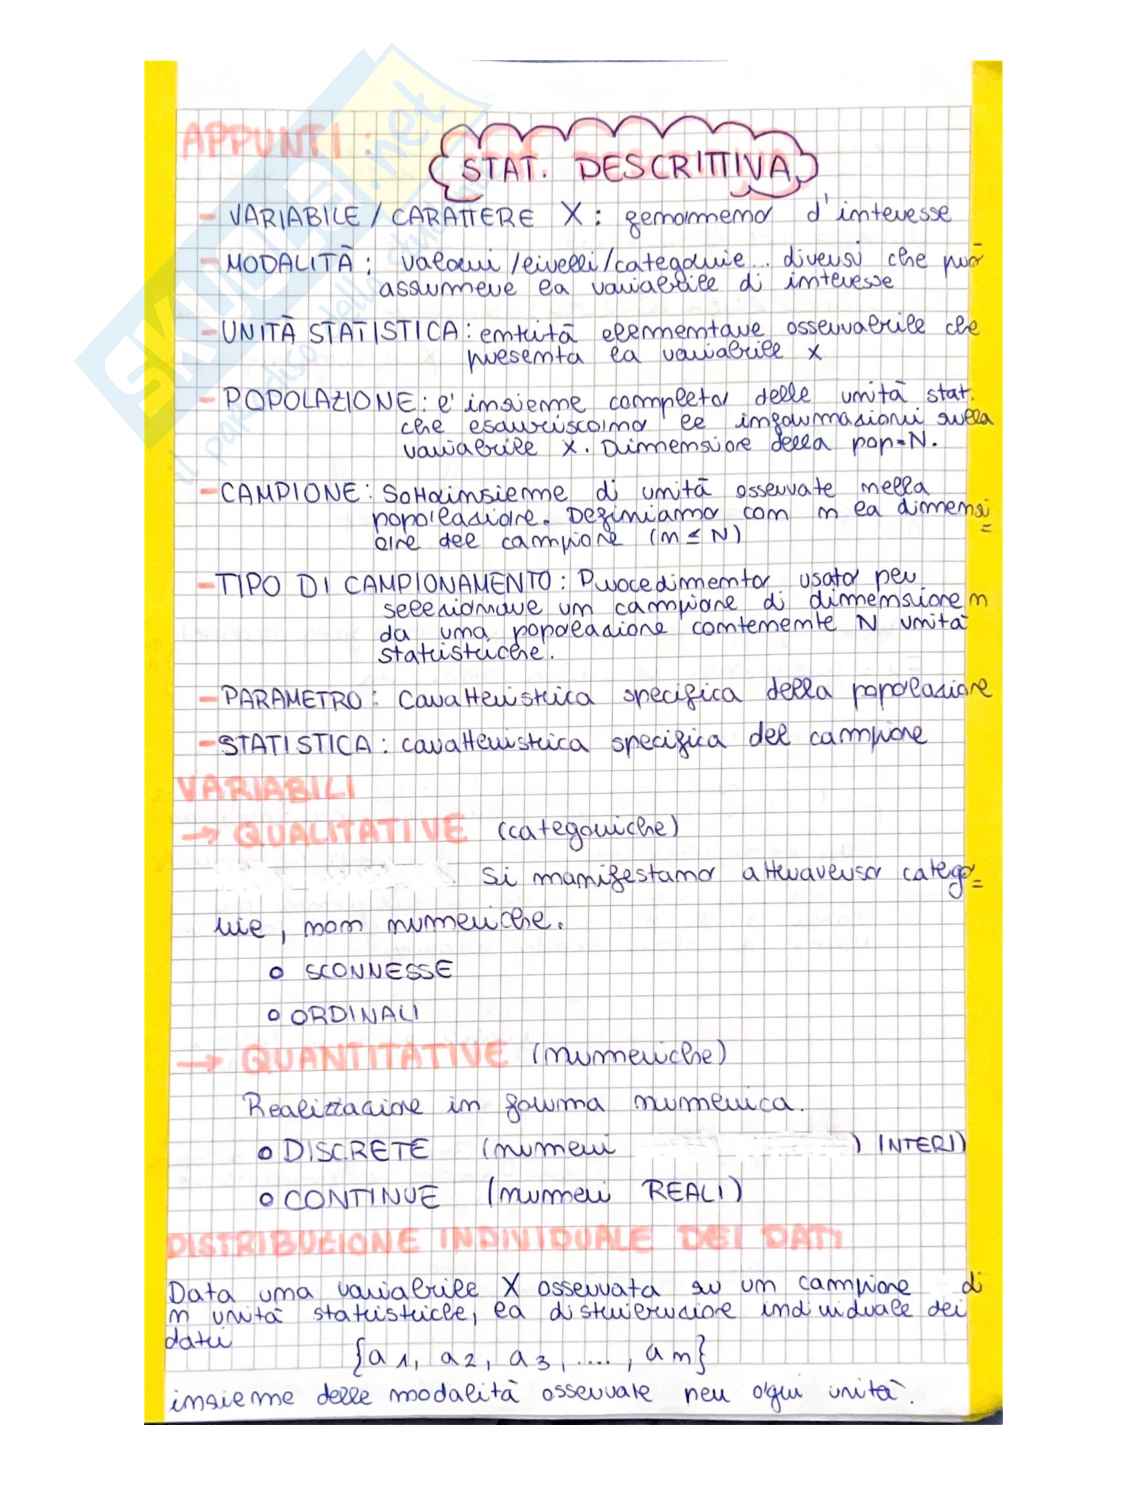 APPUNTI:
STAT. DESCRITTIVA
- VARIABILE / CARATTERE X: fenomeno d'interesse
- MODALITÀ: valori/livelli/categorie... diversi che può
assumere la variabile di interesse
- UNITÀ STATISTICA: entità elementare osservabile che
presenta la variabile x
- POPOLAZIONE: l'insieme completo delle unità stat.
che esauriscono le informazioni sulla
variabile X. Dimensione della pop=N.
- CAMPIONE: Sottoinsieme di unità osservate nella
popolazione. Definiamo con n la dimensi=
one del campione (n ≤ N)
- TIPO DI CAMPIONAMENTO: Procedimento usato per
selezionare un campione di dimensione n
da una popolazione contenente N unità
statistiche.
- PARAMETRO: Caratteristica specifica della popolazione
- STATISTICA: caratteristica specifica del campione
VARIABILI
→ QUALITATIVE (categoriche)
Si manifestano attraverso catego=
rie, non numeriche.
o SCONNESSE
o ORDINALI
→ QUANTITATIVE (numeriche)
Realizzazione in forma numerica.
o DISCRETE (numeri ) INTERI)
o CONTINUE (numeri REALI)
DISTRIBUZIONE INDIVIDUALE DEI DATI
Data una variabile X osservata su un campione di
n unità statistiche, la distribuzione individuale dei
dati
{a1, a2, a3, ...., an}
insieme delle modalità osservate per ogni unità.
SKUOLA.net
il paradiso dello studente